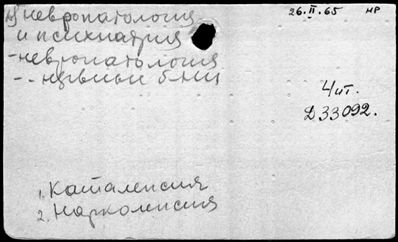 невропатология
и психиатрия
- невропатология
- нервные б-ни
26.II.65 НР
Чит.
Д33092.
1. Каталепсия
2. Нарколепсия